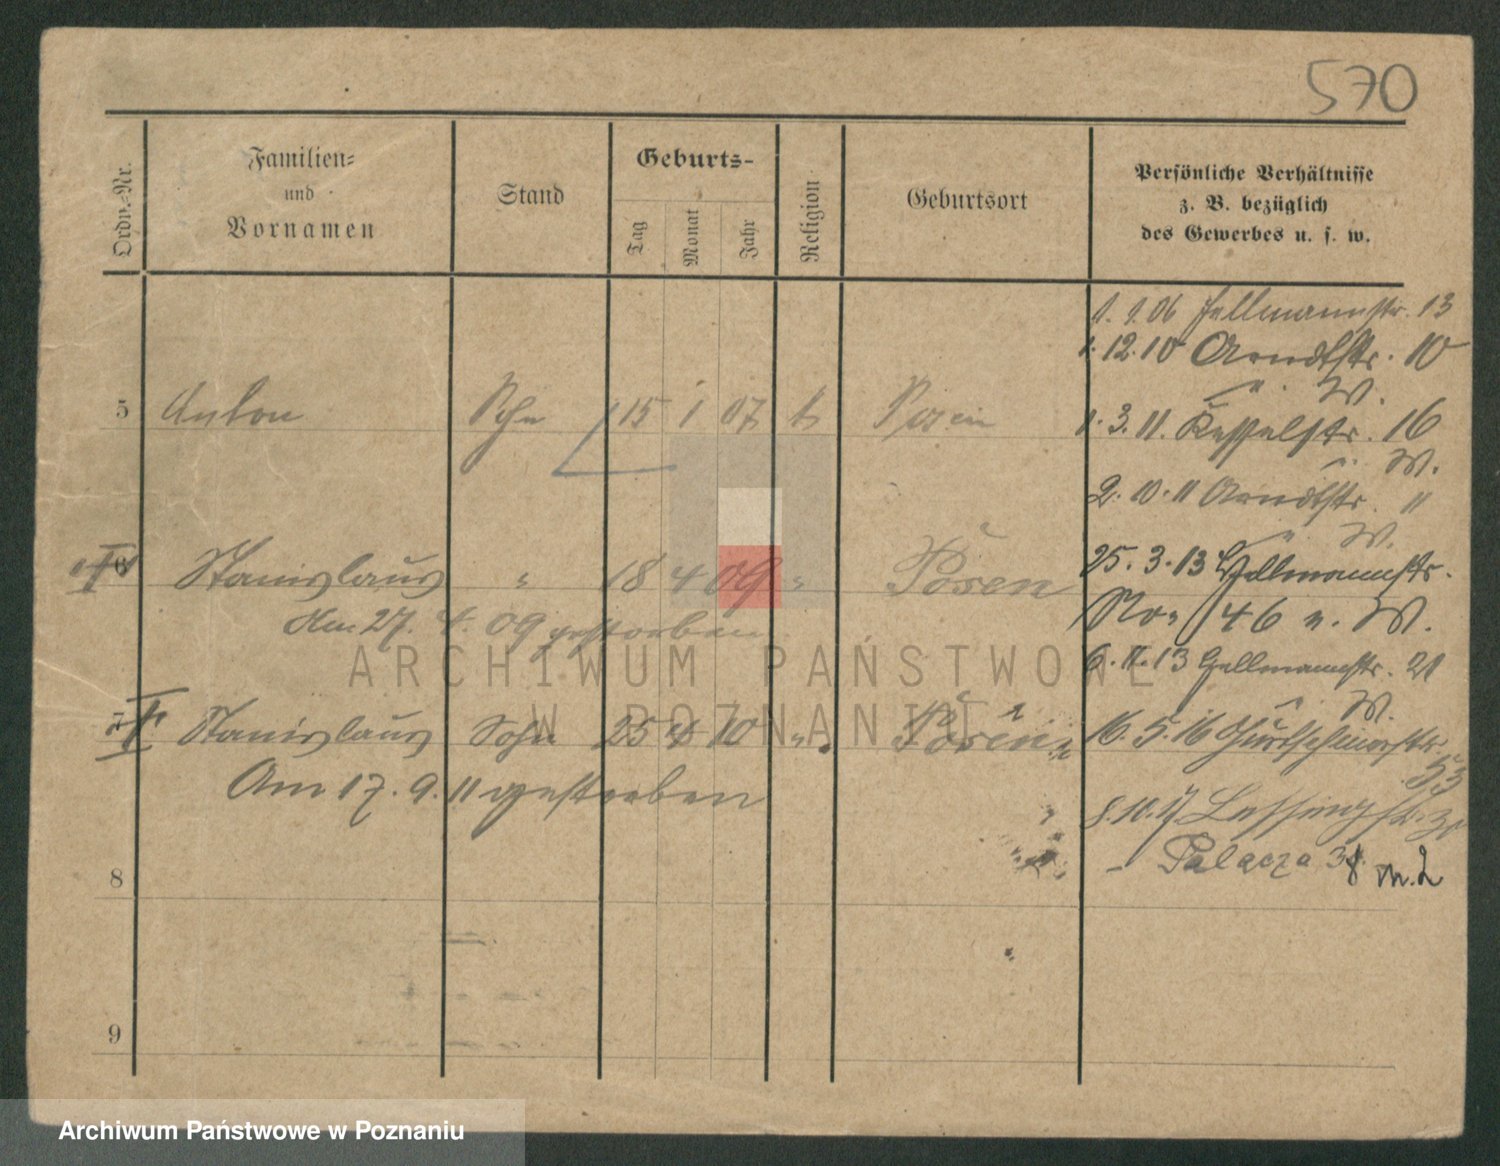 570
Ordn.-Nr.
Familien-
und
Vornamen
Stand
Geburts-
Tag
Monat
Jahr
Religion
Geburtsort
Persönliche Verhältnisse
z. B. bezüglich
des Gewerbes u. s. w.
1. 1. 06 Hellmannstr. 13
1. 12. 10 Arndtstr. 10
" W.
5 Anton Sohn 15 1 07 k Posen
1. 3. 11. Kesselstr. 16
" W.
2. 10. 11 Arndtstr. "
" W.
6 Stanislaus " 18 4 09 " Posen
25. 3. 13 Hellmannstr.
Am 27. 4. 09 gestorben
No 46 n. W.
6. 11. 13 Hellmannstr. 21
W.
7 Stanislaus Sohn 25 4 10 " Posen
16. 5. 16
53
Am 17. 9. 11 gestorben
8. 10. 17 Lessingstr.
Palacza 38 m. 2
8
9
ARCHIWUM PAŃSTWOWE
W POZNANIU
Archiwum Państwowe w Poznaniu